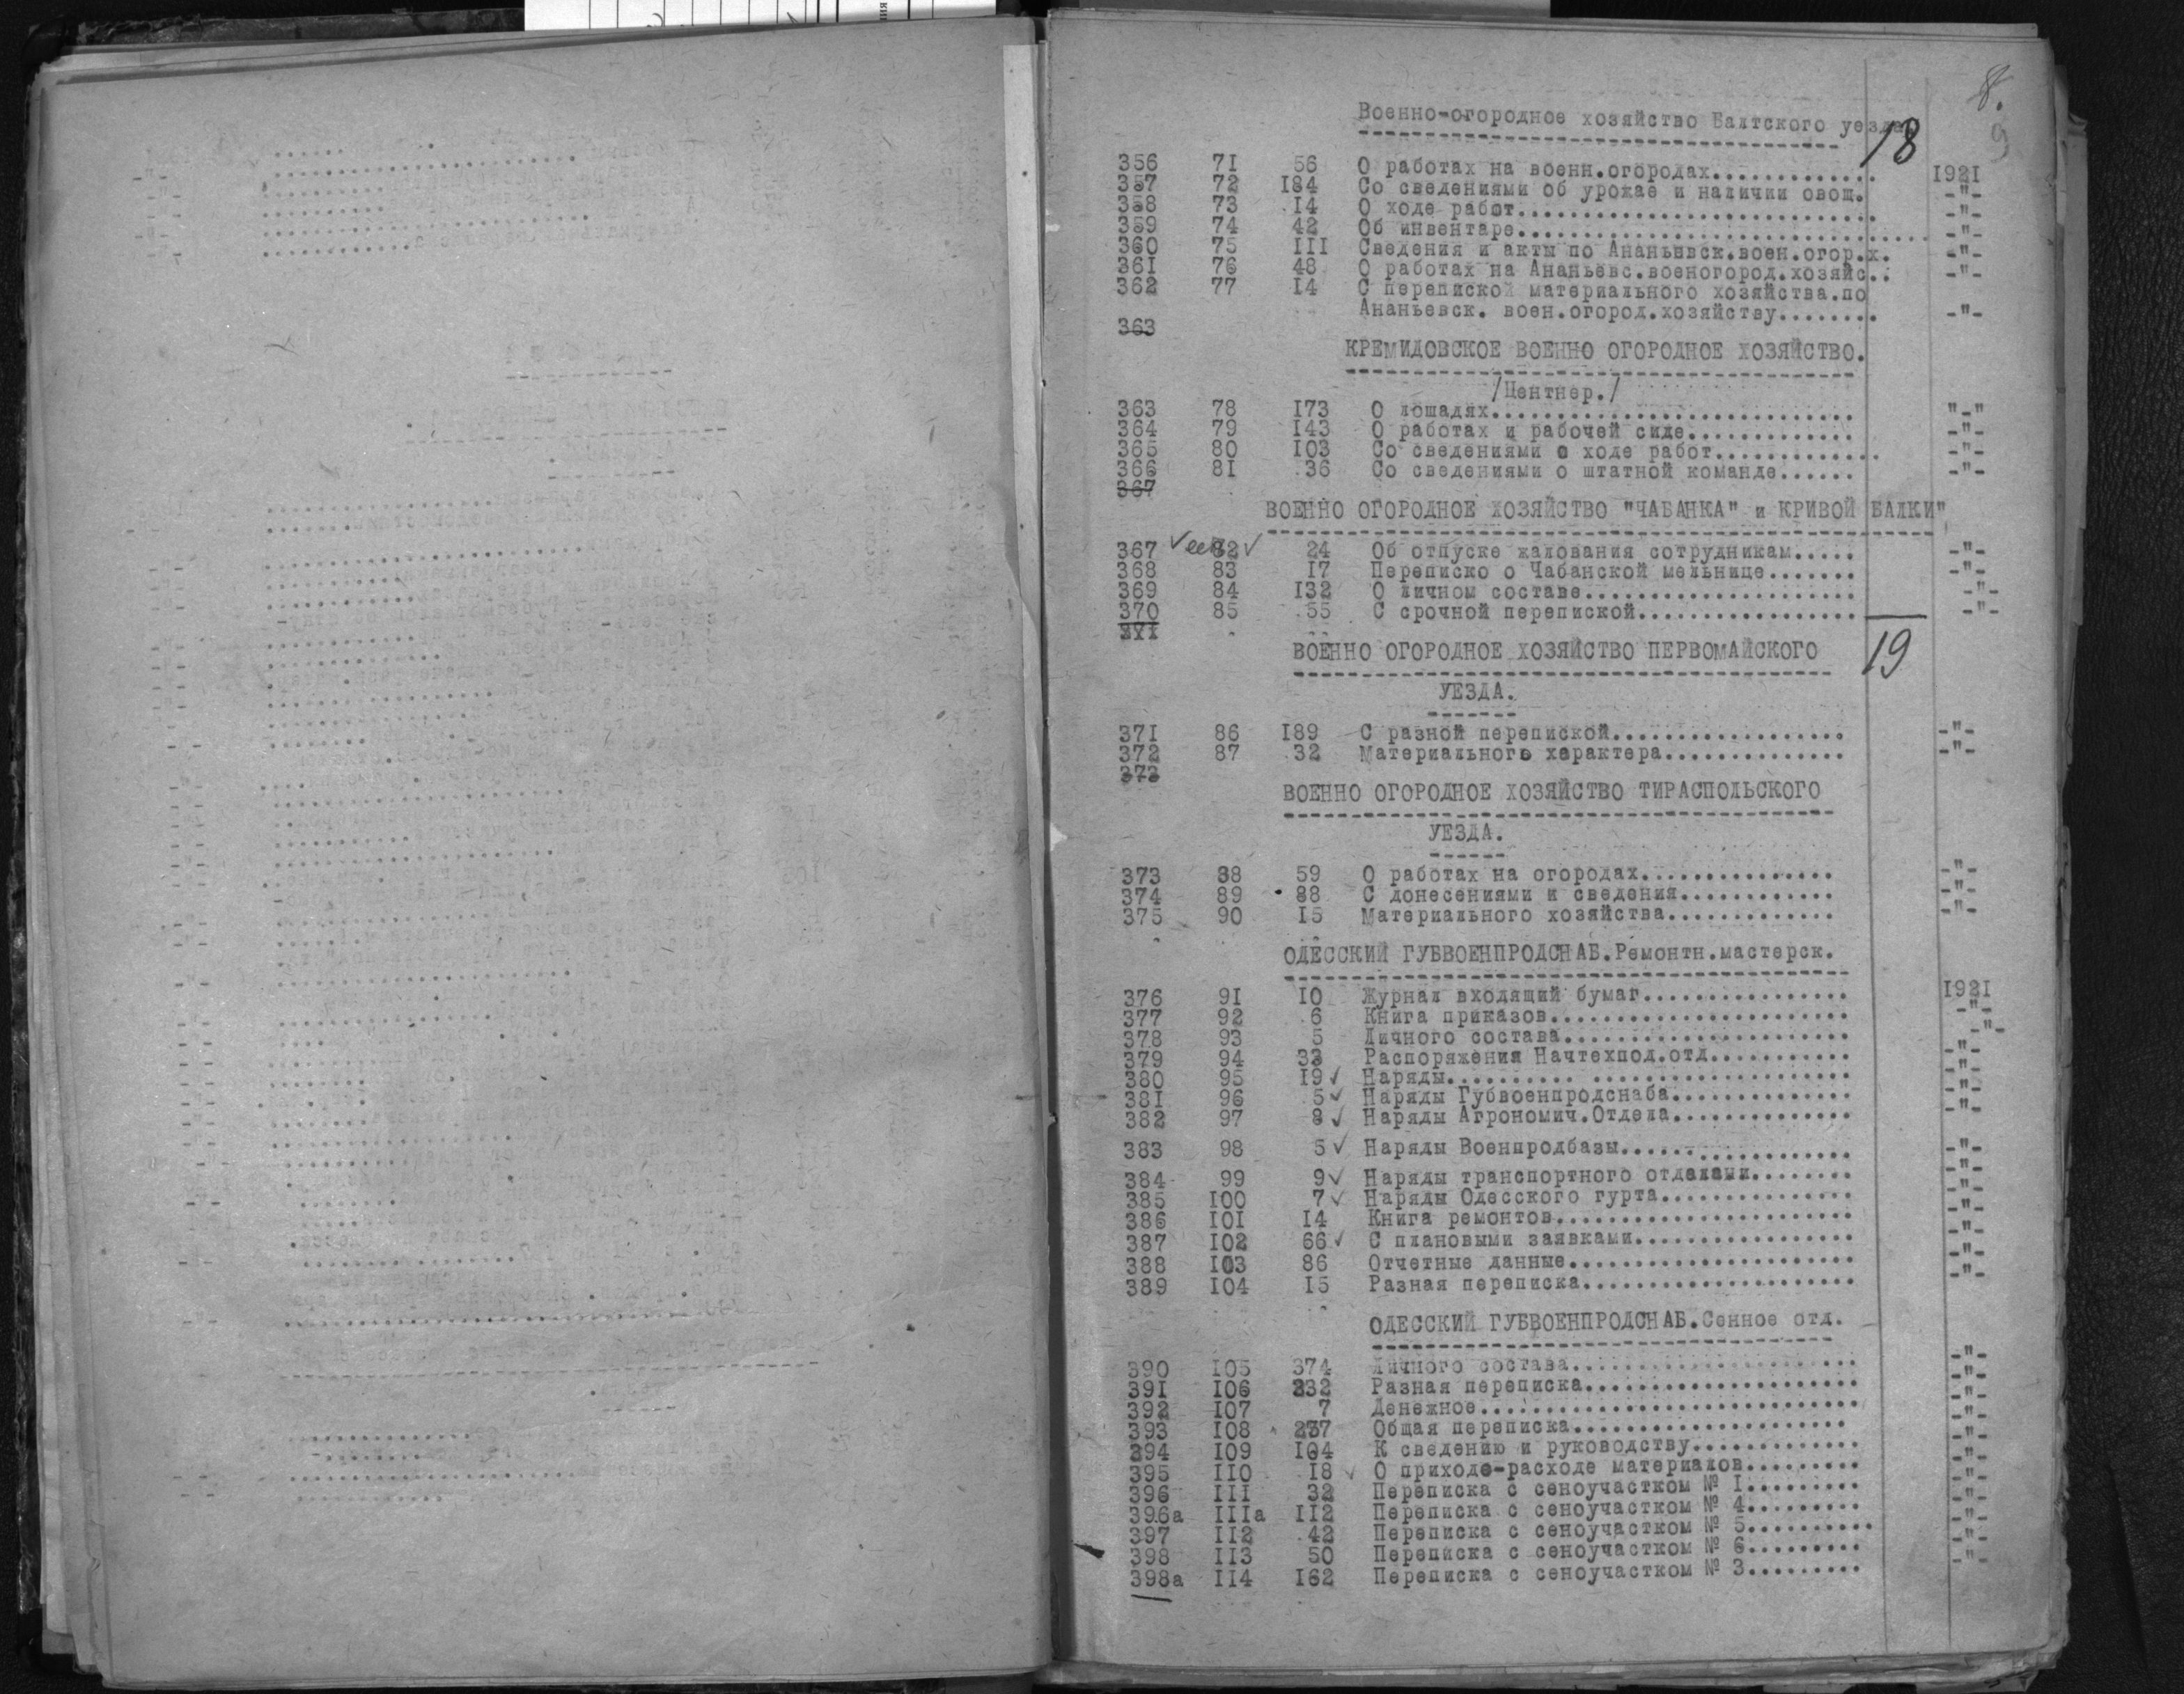 8.
9
Военно-огородное хозяйство Балтского уезда
18
356 71 56 О работах на военн.огородах............. 1921
357 72 184 Со сведениями об урожае и наличии овощ. -"-
358 73 14 О ходе работ............................ -"-
359 74 42 Об инвентаре............................ -"-
360 75 III Сведения и акты по Ананьевск.воен.огор.х. -"-
361 76 48 О работах на Ананьевс.военогород.хозяйс.. -"-
362 77 14 С перепиской материального хозяйства.по
Ананьевск. воен.огород.хозяйству........ -"-
363
КРЕМИДОВСКОЕ ВОЕННО ОГОРОДНОЕ ХОЗЯЙСТВО.
/Центнер./
363 78 173 О лошадях............................ "-"
364 79 143 О работах и рабочей силе............. -"-
365 80 103 Со сведениями о ходе работ............. -"-
366 81 36 Со сведениями о штатной команде...... -"-
367
ВОЕННО ОГОРОДНОЕ ХОЗЯЙСТВО "ЧАБАНКА" и КРИВОЙ БАЛКИ"
367 82 24 Об отпуске жалования сотрудникам..... -"-
368 83 17 Переписко о Чабанской мельнице....... -"-
369 84 132 О личном составе..................... -"-
370 85 55 С срочной перепиской.................. -"-
371
19
ВОЕННО ОГОРОДНОЕ ХОЗЯЙСТВО ПЕРВОМАЙСКОГО
УЕЗДА.
371 86 189 С разной перепиской.................. -"-
372 87 32 Материального характера.............. -"-
373
ВОЕННО ОГОРОДНОЕ ХОЗЯЙСТВО ТИРАСПОЛЬСКОГО
УЕЗДА.
373 88 59 О работах на огородах............... -"-
374 89 88 С донесениями и сведения............ -"-
375 90 15 Материального хозяйства............. -"-
ОДЕССКИЙ ГУБВОЕНПРОДСНАБ.Ремонтн.мастерск.
376 91 10 Журнал входящий бумаг................ 1921
377 92 6 Книга приказов....................... -"-
378 93 5 Личного состава...................... -"-
379 94 33 Распоряжения Начтехпод.отд........... -"-
380 95 19✓ Наряды.......... .................... -"-
381 96 5✓ Наряды Губвоенпродснаба.............. -"-
382 97 8✓ Наряды Агрономич.Отдела.............. -"-
383 98 5✓ Наряды Военпродбазы.................. -"-
384 99 9✓ Наряды транспортного отделами........ -"-
385 100 7✓ Наряды Одесского гурта............... -"-
386 101 14 Книга ремонтов....................... -"-
387 102 66✓ С плановыми заявками................. -"-
388 103 86 Отчетные данные...................... -"-
389 104 15 Разная переписка..................... -"-
ОДЕССКИЙ ГУБВОЕНПРОДСНАБ.Сенное отд.
390 105 374 Личного состава...................... -"-
391 106 232 Разная переписка..................... -"-
392 107 7 Денежное............................. -"-
393 108 237 Общая переписка..................... -"-
394 109 104 К сведению и руководству............. -"-
395 110 18 ✓ О приходе-расходе материалов......... -"-
396 III 32 Переписка с сеноучастком № 1......... -"-
396а IIIа 112 Переписка с сеноучастком № 4......... -"-
397 112 42 Переписка с сеноучастком № 5.......... -"-
398 113 50 Переписка с сеноучастком № 6......... -"-
398а 114 162 Переписка с сеноучастком № 3.........